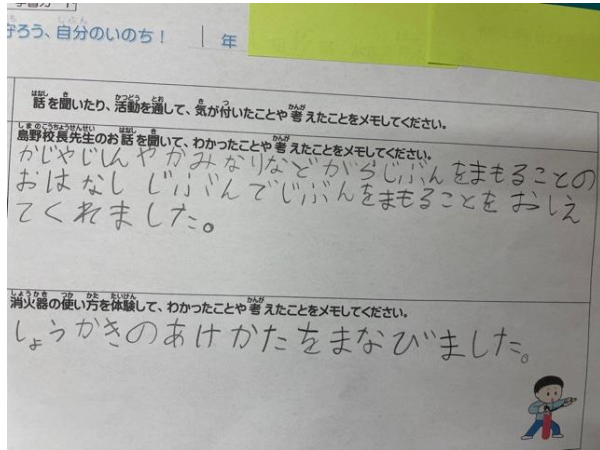 守ろう、自分のいのち！ 1年
話を聞いたり、活動を通して、気が付いたことや考えたことをメモしてください。
島野校長先生のお話を聞いて、わかったことや考えたことをメモしてください。
かじやじしんやかみなりなどからじぶんをまもることの
おはなし じぶんでじぶんをまもることをおしえ
てくれました。
消火器の使い方を体験して、わかったことや考えたことをメモしてください。
しょうかきのあけかたをまなびました。